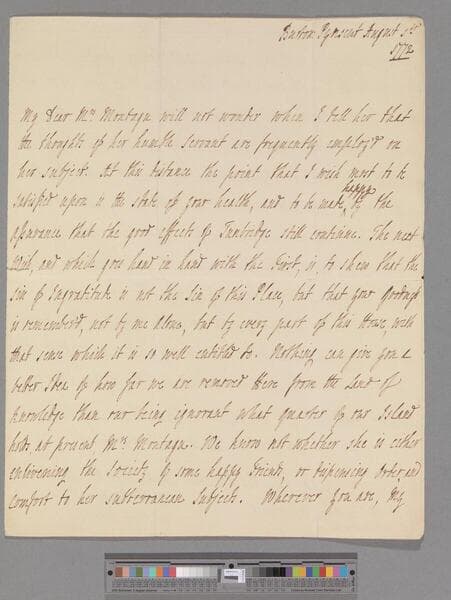 Burton Pynsent August 3d
1772
My Dear Mrs Montagu will not wonder when I tell her that
the thoughts of her humble Servant are frequently employ'd on
her Subject. At this distance the point that I wish most to be
satisfied upon is the state of your health, and to be made happy by the
assurance that the good effects of Tunbridge still continue. The next
Wish, and which goes hand in hand with the first, is, to shew that the
sin of Ingratitude is not the Sin of this Place, but that your Goodness
is remember'd, not by me alone, but by every part of this House, with
that sense which it is so well entitled to. Nothing can give you a
better Idea of how far we are removed Here from the Land of
Knowledge than our being ignorant what quarter of our Island
holds at present Mrs Montagu. We know not whether she is either
enlivening the Society of some happy Friends, or dispensing Order and
Comfort to her subterranean Subjects. Wherever you are, My